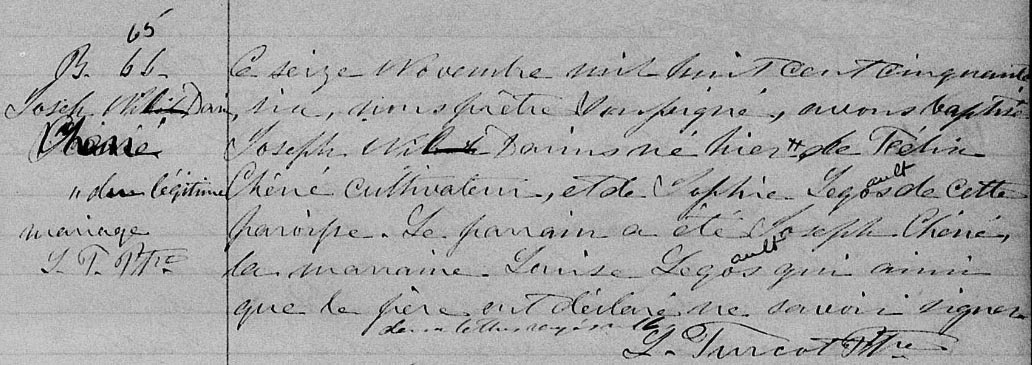 65
B. 66
Joseph Wil Darius
Chéné
" du légitime
mariage
L. T. Ptre
Ce seize Novembre mil huit cent cinquante
six, nous prêtre soussigné, avons baptisé
Joseph Wil Darius né hier " de Félix
Chéné cultivateur, et de Sophie Legault de cette
paroisse. Le parrain a été Joseph Chéné,
la marraine Louise Legault qui ainsi
que le père ont déclaré ne savoir signer
L. Turcot Ptre